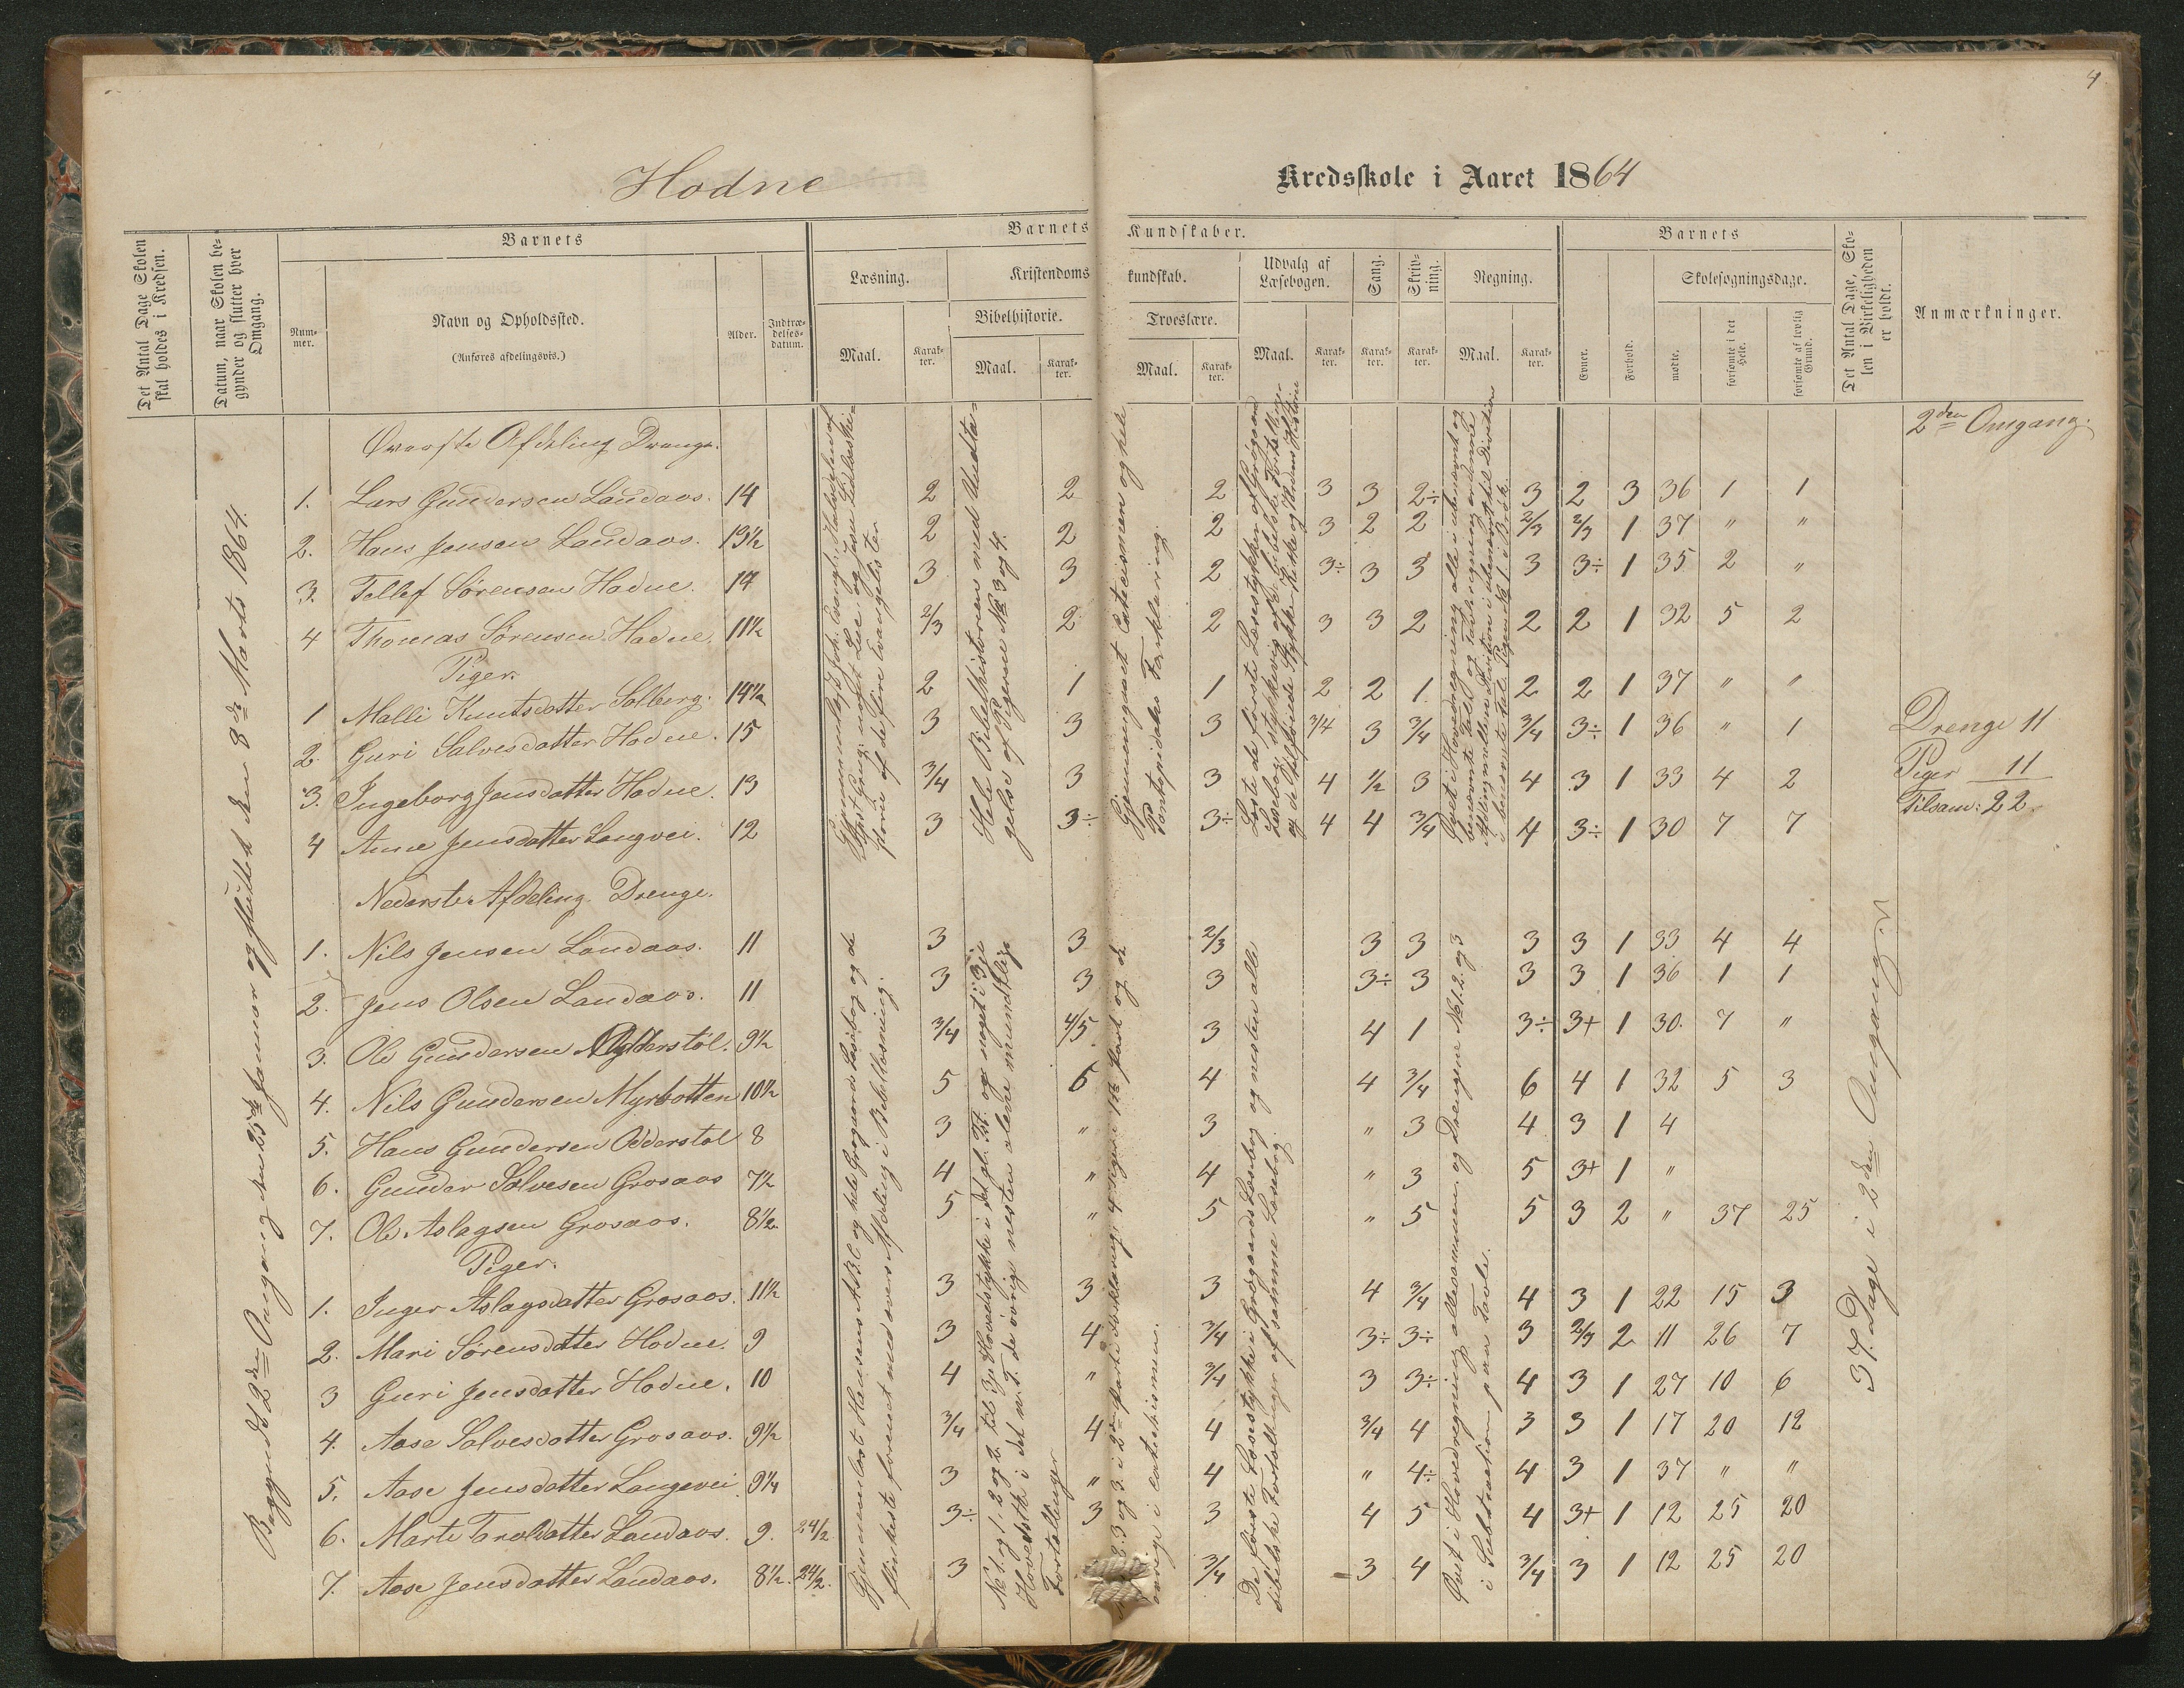 4
Hodne
Kredsskole i Aaret 1864
Det Antal Dage Skolen skal holdes i Kredsen.
Datum, naar Skolen begynder og slutter hver Omgang.
Barnets
Nummer.
Navn og Opholdssted.
(Anføres afdelingsvis.)
Alder.
Indtrædelsesdatum.
Barnets Kundskaber.
Læsning.
Maal.
Karakter.
Kristendomskundskab.
Bibelhistorie.
Maal.
Karakter.
Troeslære.
Maal.
Karakter.
Udvalg af Læsebogen.
Maal.
Karakter.
Sang.
Karakter.
Skrivning.
Karakter.
Regning.
Maal.
Karakter.
Barnets
Evner.
Forhold.
Skolesøgningsdage.
mødte.
forsømte i det Hele.
forsømte af lovlig Grund.
Det Antal Dage, Skolen i Virkeligheden er holdt.
Anmærkninger.
2den Omgang.
Begyndt 2den Omgang den 25de Januar og sluttet den 8de Marts 1864.
Øverste Afdeling Drenge.
1. Lars Gundersen Landaas. 14 2 2 2 3 3 2÷ 3 2 3 36 1 1
2. Hans Jensen Landaas. 13½ 2 2 2 3 2 2 2/3 2/3 1 37 " "
3. Tellef Sørensen Hodne. 14 3 3 2 3÷ 3 3 3 3÷ 1 35 2 "
4 Thomas Sørensen Hodne. 11½ 2/3 2 2 3 3 2 2 2 1 32 5 2
Piger.
1 Malli Knutsdatter Solberg. 14½ 2 1 1 2 2 1 2 2 1 37 " "
2. Guri Salvesdatter Hodne. 15 3 3 3 3/4 3 3/4 3/4 3÷ 1 36 " 1
3. Ingeborg Jensdatter Hodne. 13 3/4 3 3 4 ½ 3 4 3 1 33 4 2
4 Anne Jensdatter Langvei. 12 3 3÷ 3÷ 4 4 3/4 4 3÷ 1 30 7 7
Hele Bibelhistorien med Undtagelse af Pigerne No 3 og 4.
Gjennemgaaet Catecismen og hele
Pontopidans Forklaring.
Drenge 11
Piger 11
Tilsam: 22
Nederste Afdeling. Drenge.
1. Nils Jensen Landaas. 11 3 3 2/3 3 3 3 3 1 33 4 4
2. Jens Olsen Landaas. 11 3 3 3 3÷ 3 3 3 1 36 1 1
3. Ole Gundersen 9½ 3/4 4/5 3 4 1 3÷ 3+ 1 30. 7 "
4. Nils Gundersen Myrbotten 10½ 5 6 4 4 3/4 6 4 1 32 5 3
5. Hans Gundersen Odderstøl 8 3 " 3 " 3 4 3 1 4
6. Gunder Salvesen Grosaas 7½ 4 " 4 " 3 5 3+ 1 "
7. Ole Aslagsen Grosaas. 8½ 5 " 5 " 5 5 3 2 " 37 25
Piger.
1. Inger Aslagsdatter Grosaas. 11½ 3 3 3 4 3/4 4 3 1 22 15 3
2. Mari Sørensdatter Hodne. 9 3 4 3/4 3÷ 3÷ 3 2/3 2 11 26 7
3 Guri Jensdatter Hodne. 10 4 " 3/4 3 3÷ 4 3 1 27 10 6
4. Aase Salvesdatter Grosaas. 9½ 3/4 4 4 3/4 4 3 3 1 17 20 12
5. Aase Jensdatter Langevei 9¼ 3 " 4 " 4÷ 4 3 1 37 " "
6. Marte Taroldatter Landaas. 9. 24/2 3÷ 3 3 4 5 4 3+ 1 12 25 20
7. Aase Jensdatter Landaas. 8½. 24/2. 3 3/4 3 4 3/4 3 1 12 25 20
Gjennemlæst Hansens A.B.C og hele Grøgaards Læsebog og de
flinkeste forenet med øverste Afdeling i Bibellæsning.
De første Læsestykke i Grøgaards Læsebog og næsten alle
bibelske Fortællinger af samme Læsebog.
Øvet i Hovedregning allesammen, og Drengene No 1. 2. og 3
i Subtraction paa Tavle.
37. Dage i 2den Omgang.